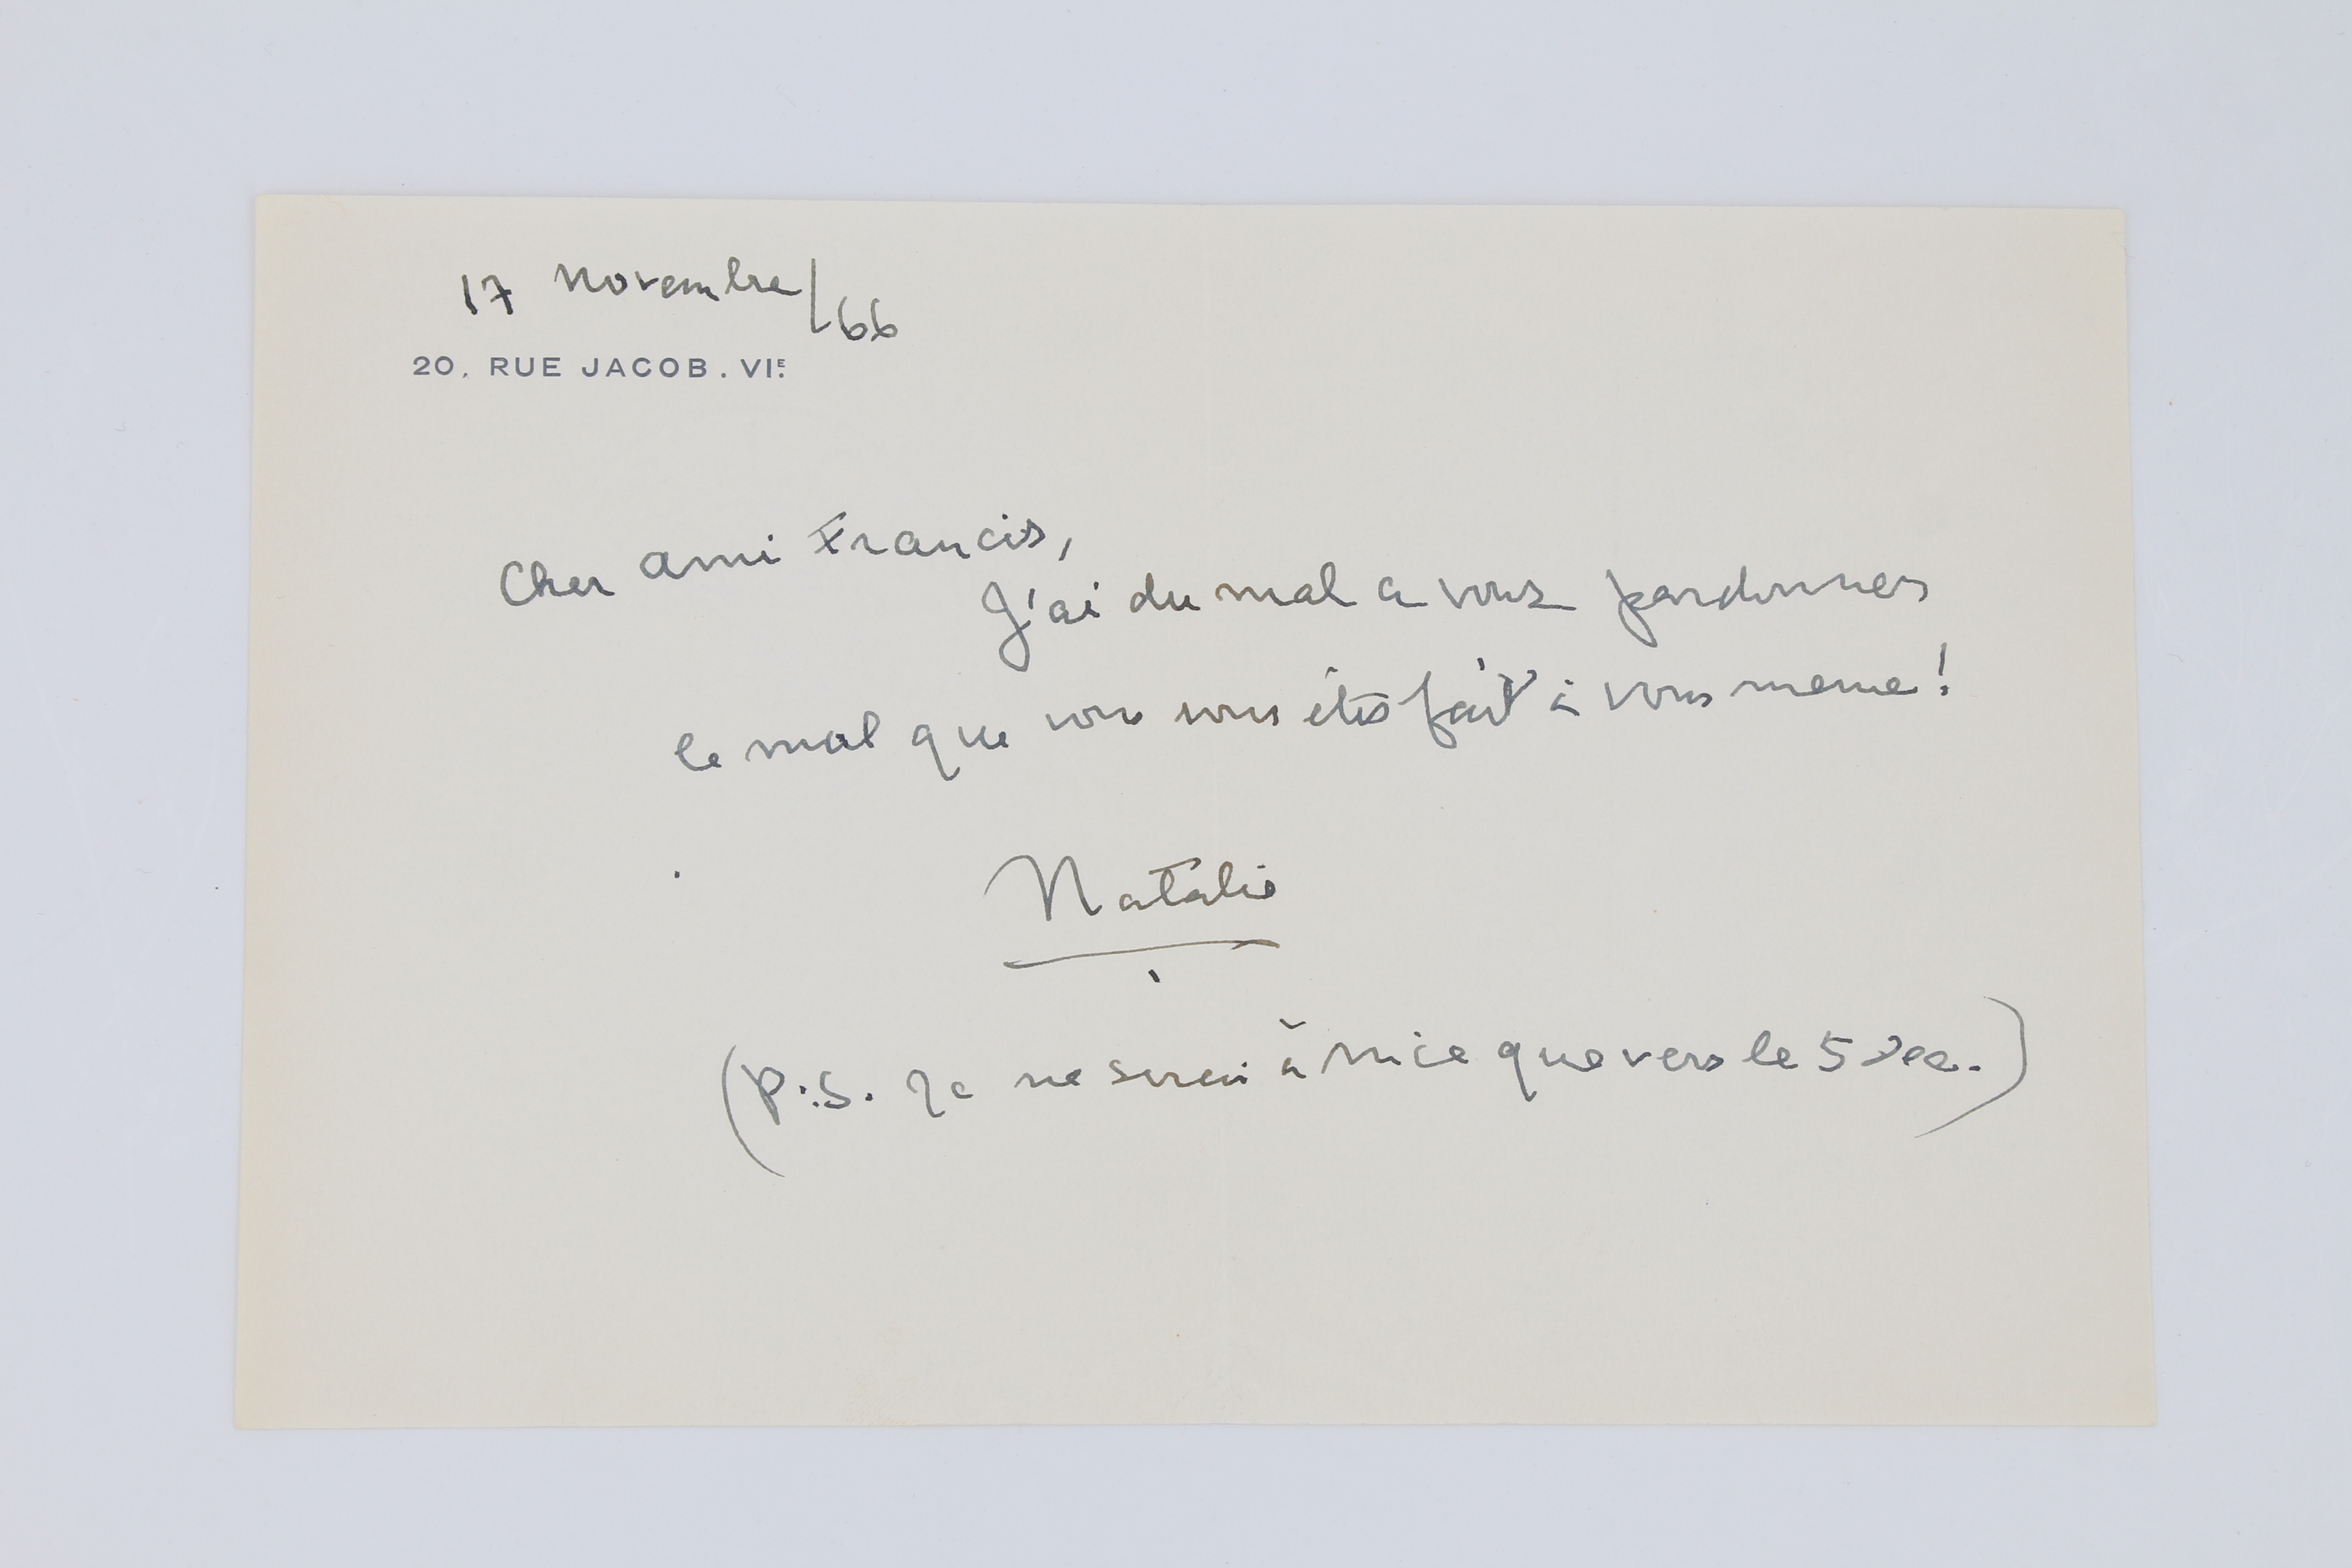 17 Novembre/66
20, RUE JACOB. VIE.
Cher ami Francis,
J'ai du mal a vous pardonner
le mal que vous vous êtes fait à vous meme!
Natalie
(P.S. Je ne serai à Nice que vers le 5 Dec.)